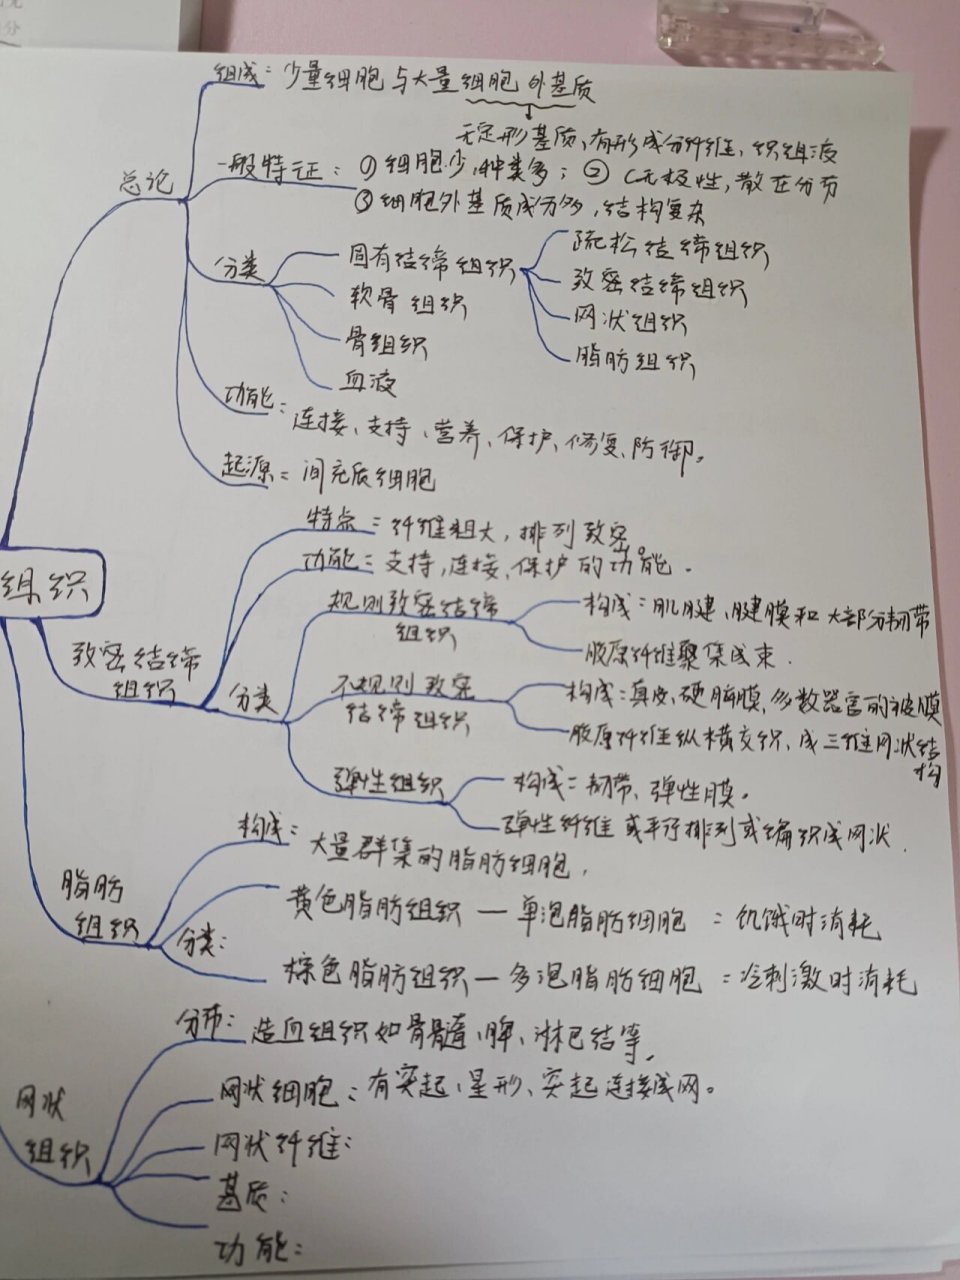 组成：少量细胞与大量细胞外基质
无定形基质、有形成分纤维、织组液
总论
一般特证：①细胞少，种类多；②C无极性，散在分布
③细胞外基质成分多，结构复杂
分类
固有结缔组织
疏松结缔组织
致密结缔组织
网状组织
脂肪组织
软骨组织
骨组织
血液
功能：
连接、支持、营养、保护、修复、防御。
起源：间充质细胞
组织
致密结缔
组织
特点：纤维粗大，排列致密。
功能：支持，连接、保护的功能.
分类
规则致密结缔
组织
构成：肌腱、腱膜和大部分韧带
胶原纤维聚集成束.
不规则致密
结缔组织
构成：真皮、硬脑膜、多数器官的被膜
胶原纤维纵横交织，成三维网状结
构
弹性组织
构成：韧带、弹性膜。
弹性纤维或平行排列或编织成网状.
脂肪
组织
构成：
大量群集的脂肪细胞，
分类：
黄色脂肪组织—单泡脂肪细胞：饥饿时消耗
棕色脂肪组织—多泡脂肪细胞：冷刺激时消耗
网状
组织
分布：造血组织如骨髓、脾、淋巴结等，
网状细胞：有突起、星形、突起连接成网。
网状纤维：
基质：
功能：